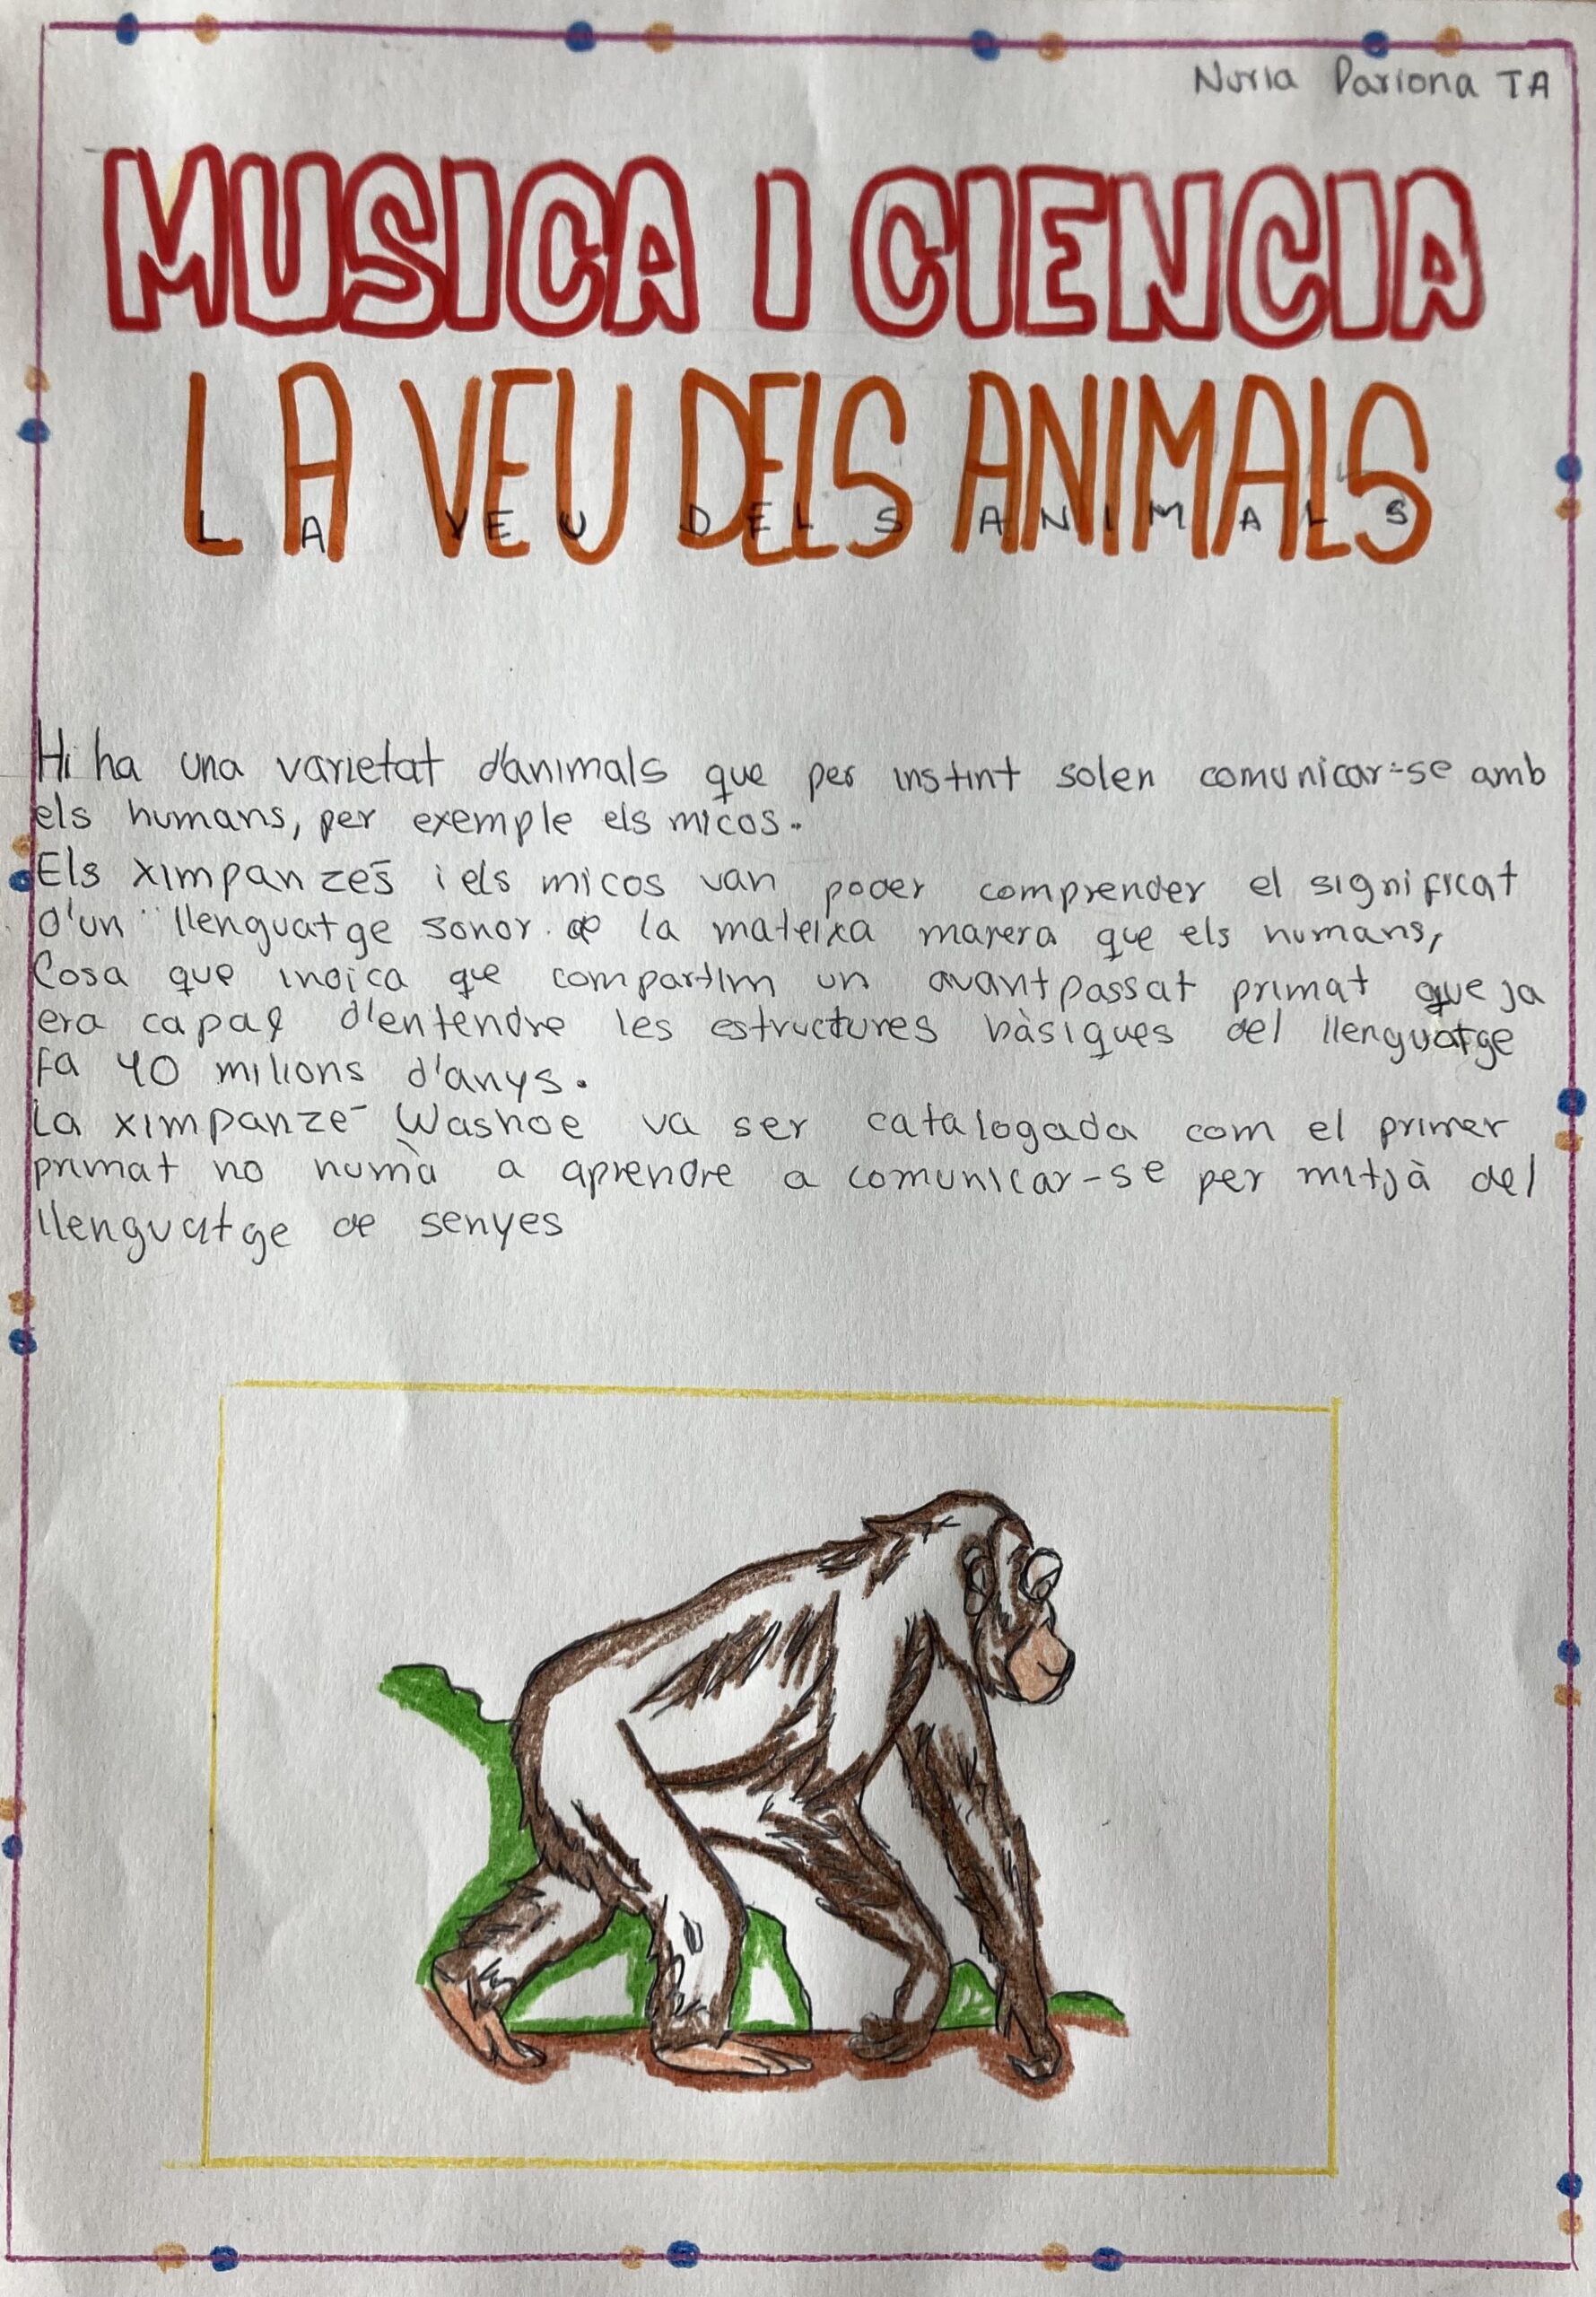 Nuria Pariona TA
MUSICA I CIENCIA
LA VEU DELS ANIMALS
LA VEU DELS ANIMALS
Hi ha una varietat d'animals que per instint solen comunicar-se amb
els humans, per exemple els micos.
Els ximpanzés i els micos van poder comprender el significat
d'un llenguatge sonor de la mateixa manera que els humans,
Cosa que indica que compartim un avantpassat primat que ja
era capaç d'entendre les estructures bàsiques del llenguatge
fa 40 milions d'anys.
La ximpanzé Washoe va ser catalogada com el primer
primat no humà a aprendre a comunicar-se per mitjà del
llenguatge de senyes